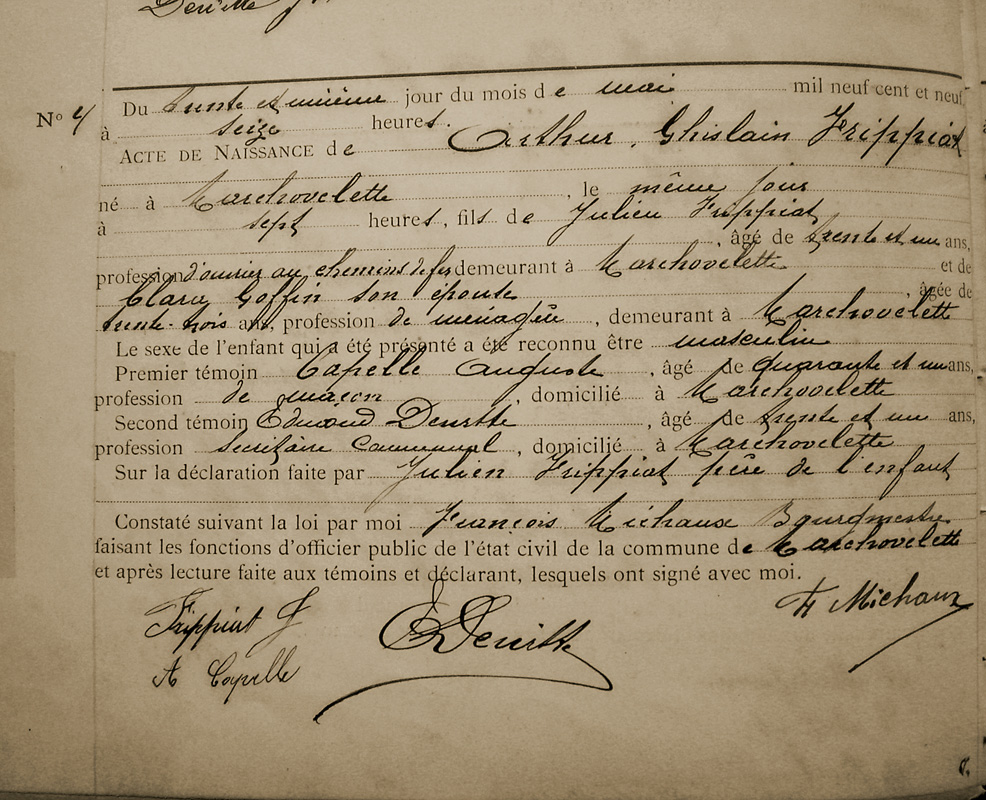 Du trente et unième jour du mois de mai mil neuf cent et neuf,
N° 4
à seize heures.
ACTE DE NAISSANCE de Arthur, Ghislain Frippiat
né à Marchovelette, le même jour
à sept heures, fils de Julien Frippiat
, âgé de trente et un ans,
profession d'ouvrier au chemins de fer demeurant à Marchovelette et de
Clara Goffin son épouse, âgée de
trente-trois ans, profession de ménagère, demeurant à Marchovelette
Le sexe de l'enfant qui a été présenté a été reconnu être masculin
Premier témoin Capelle Auguste, âgé de quarante et un ans,
profession de maçon, domicilié à Marchovelette
Second témoin Edmond, âgé de trente et un ans,
profession secrétaire communal, domicilié à Marchovelette
Sur la déclaration faite par Julien Frippiat père de l'enfant
Constaté suivant la loi par moi François Michaux Bourgmestre
faisant les fonctions d'officier public de l'état civil de la commune de Marchovelette
et après lecture faite aux témoins et déclarant, lesquels ont signé avec moi.
F Michaux
Frippiat J
A Capelle